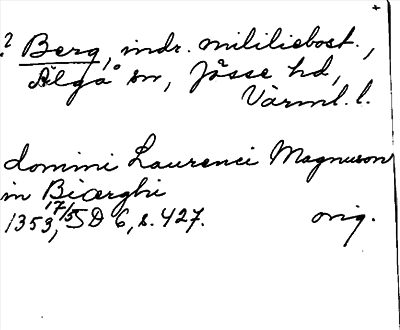 ? Berg, indr. militiebost.,
Älgå sn, Jösse hd,
Värml. l.
domini Laurenci Magnuson
in Biærghi
1353, 17/5 SD 6, s. 427. orig.